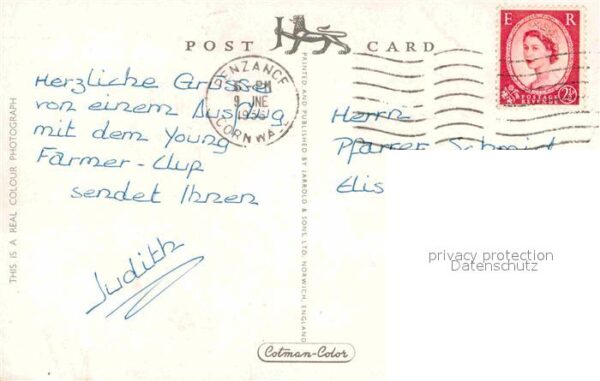 POST CARD
E R
POSTAGE
REVENUE
2½
PENZANCE
CORNWALL
Herzliche Grüsse
von einem Ausflug
mit dem Young
Farmer-Club
sendet Ihnen
Judith
Herrn
Pfarrer Schmid
Elis
THIS IS A REAL COLOUR PHOTOGRAPH
PRINTED AND PUBLISHED BY JARROLD & SONS, LTD. NORWICH, ENGLAND
Cotman-Color
privacy protection
Datenschutz